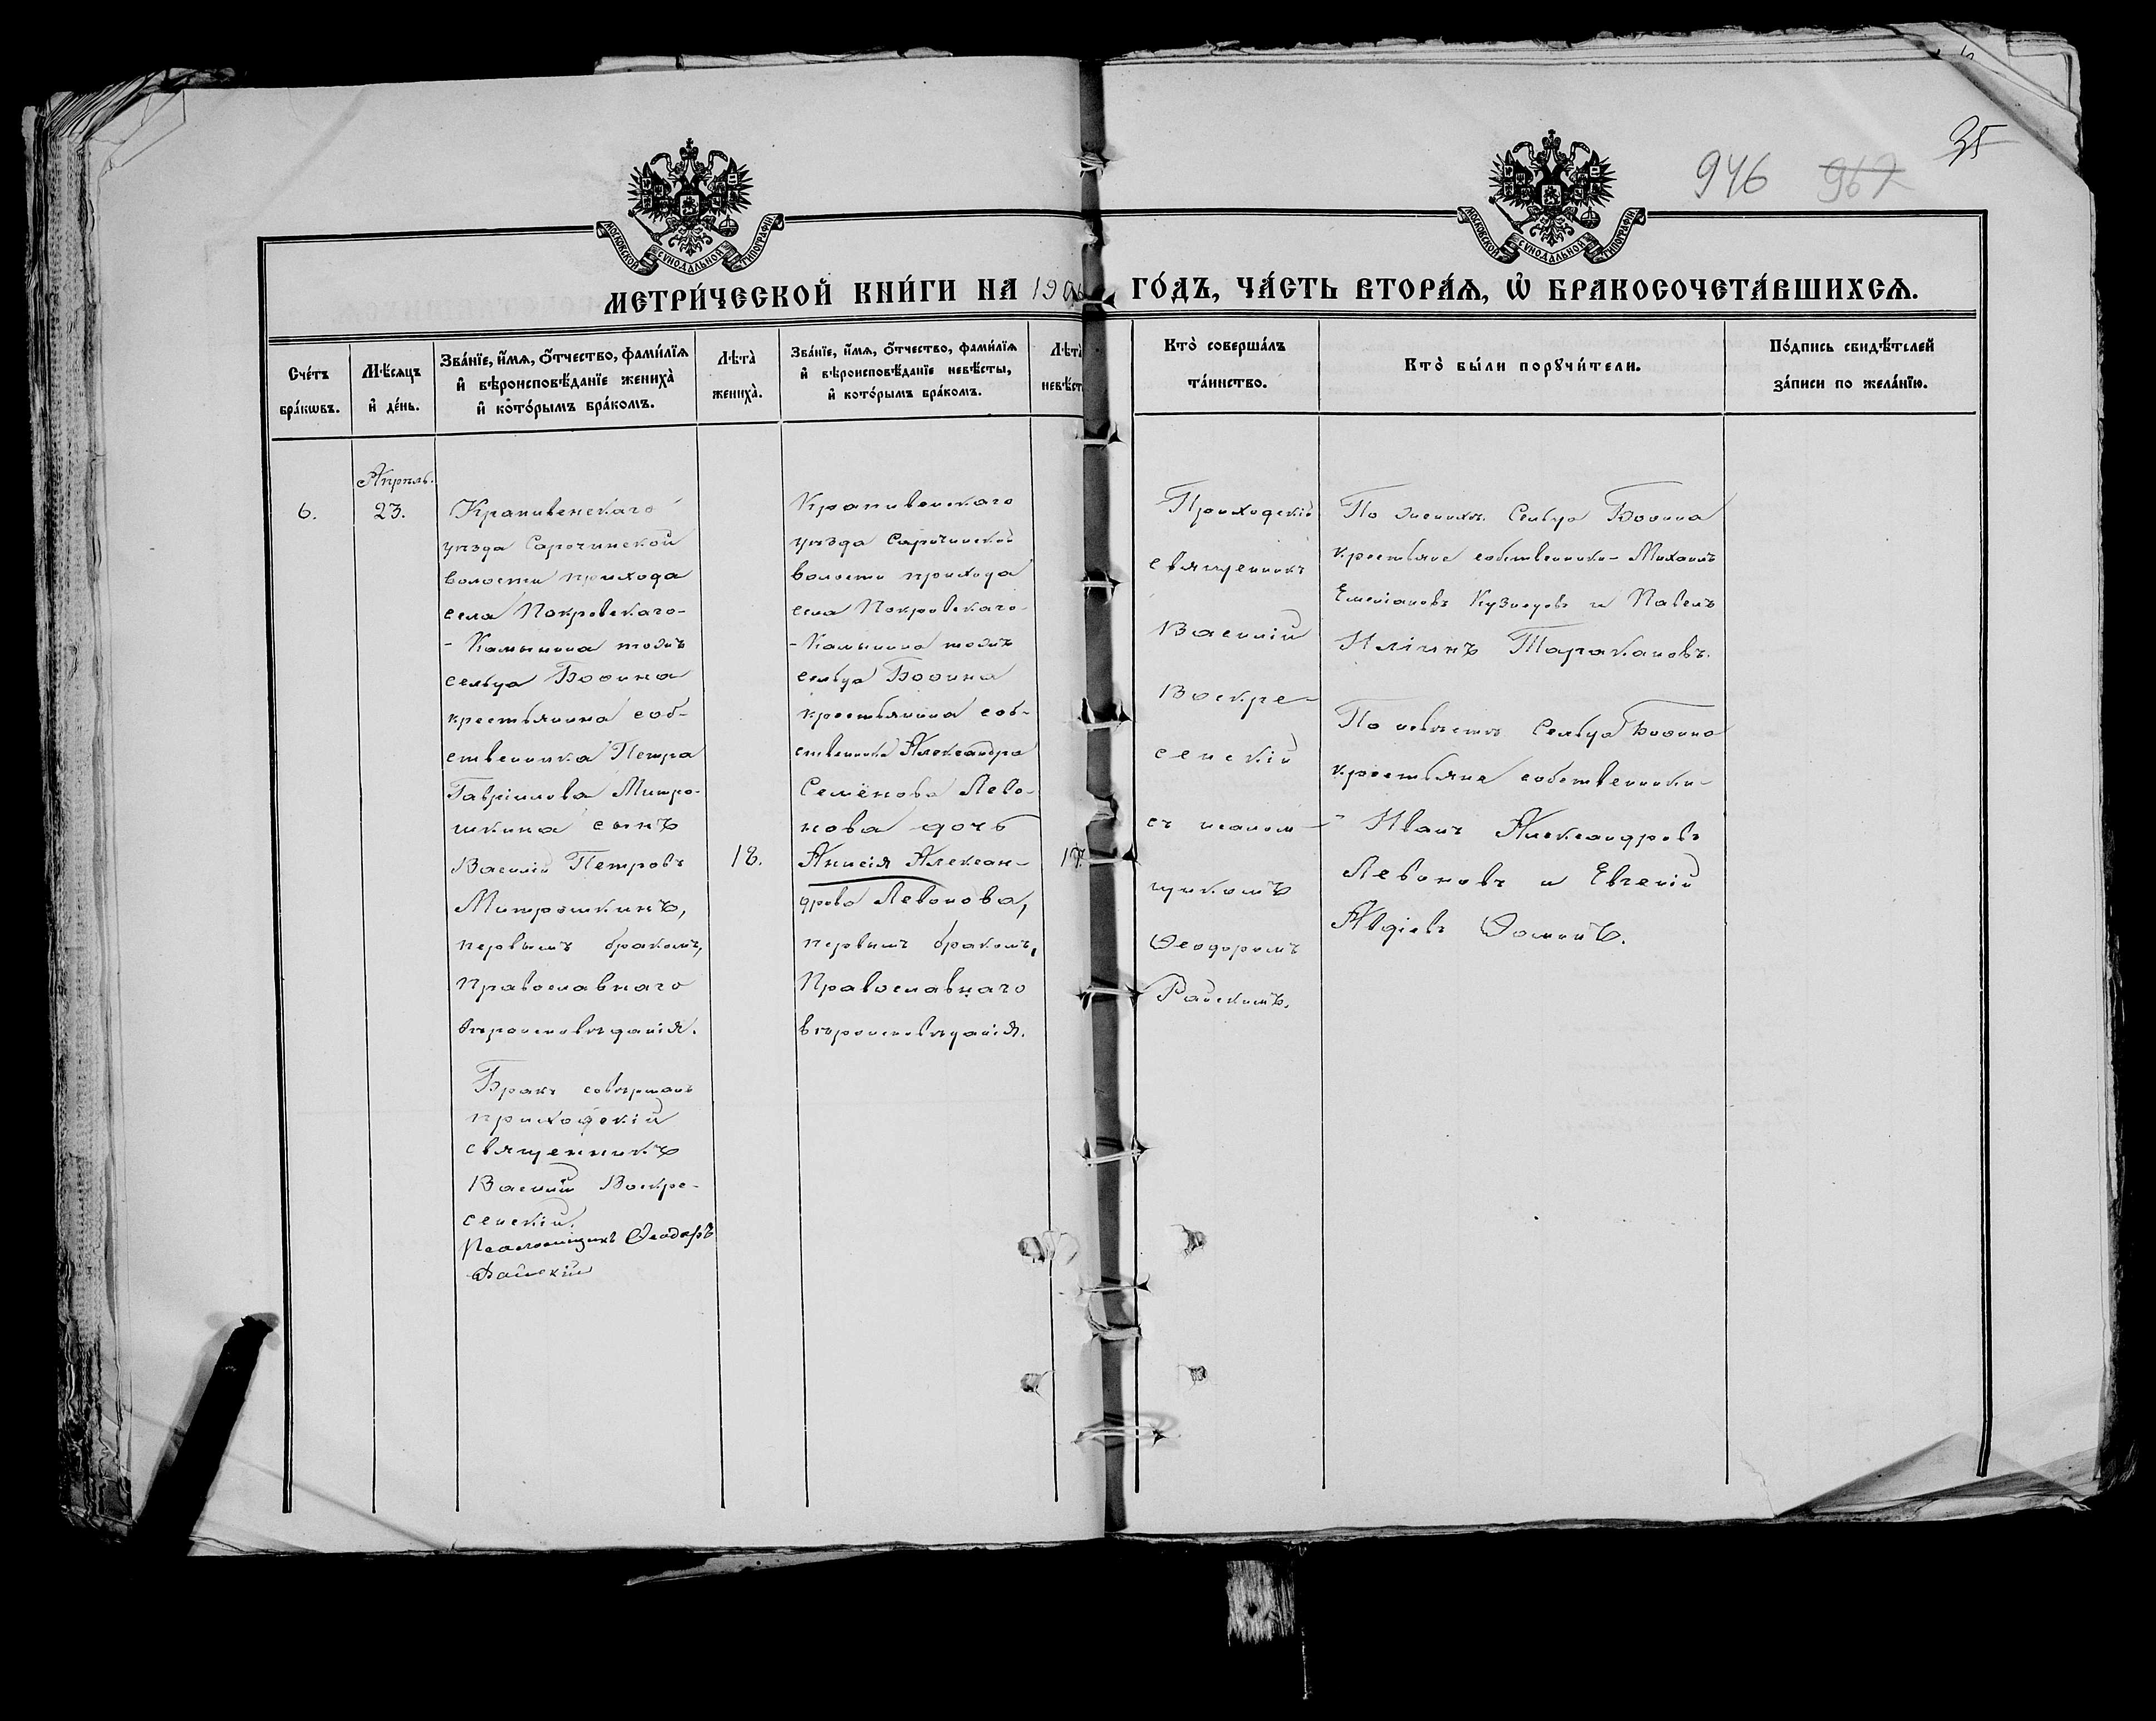 946 967 35
МОСКОВСКОЙ СѴНОДАЛЬНОЙ ТИПОГРАФІИ
МОСКОВСКОЙ СѴНОДАЛЬНОЙ ТИПОГРАФІИ
МЕТРИ́ЧЕСКОЙ КНИ́ГИ НА 190 ГО́ДЪ, ЧА́СТЬ ВТОРА́Ѧ, Ѡ҆ БРАКОСОЧЕТА́ВШИХСѦ.
Сче́тъ
бра́кѡвъ.
Мѣ́сѧцъ
и҆ де́нь.
Зва́нїе, и҆́мѧ, ѻ҆́тчество, фами́лїѧ
и҆ вѣроисповѣ́данїе жениха̀
и҆ кото́рымъ бра́комъ.
Лѣта̀
жениха̀.
Зва́нїе, и҆́мѧ, ѻ҆́тчество, фами́лїѧ
и҆ вѣроисповѣ́данїе невѣ́сты,
и҆ кото́рымъ бра́комъ.
Лѣта̀
невѣ́ст
Кто̀ соверша́лъ
та́инство.
Кто̀ бы́ли порꙋчи́тели.
По́дпись свидѣ́телей
за́писи по жела́нїю.
6.
Апрѣль.
23.
Крапивенскаго
уѣзда Сорочинской
волости прихода
села Покровскаго-
-Камынина тожъ
сельца БоОина
крестьянина соб-
ственника Петра
Гавріилова Митро-
шкина сынъ
Василій Петровъ
Митрошкинъ,
первымъ бракомъ,
Православнаго
вѣроисповѣданія.
Бракъ совершалъ
приходскій
священникъ
Василій Воскре-
сенскій.
Псаломщикъ Ѳеодоръ
Райскій
18.
Крапивенскаго
уѣзда Сорочинской
волости прихода
села Покровскаго-
-Камынина тожъ
сельца
крестьянина соб-
ственника Александра
Семёнова Лево-
нова дочь
Анисія Алексан-
дрова Левонова,
первымъ бракомъ,
Православнаго
вѣроисповѣданія.
17.
Приходскій
священникъ
Василій
Воскре-
сенскій
съ псалом-
щикомъ
Ѳеодоромъ
Райскимъ.
По женихѣ: Сельца
крестьяне собственники- Михаилъ
Емеліановъ Кузнецовъ и Павелъ
Иліинъ Таракановъ.
По невѣстѣ Сельца
крестьяне собственники-
- Иванъ Александровъ
Левоновъ и Евгеній
Авдіевъ Ѳоминъ.